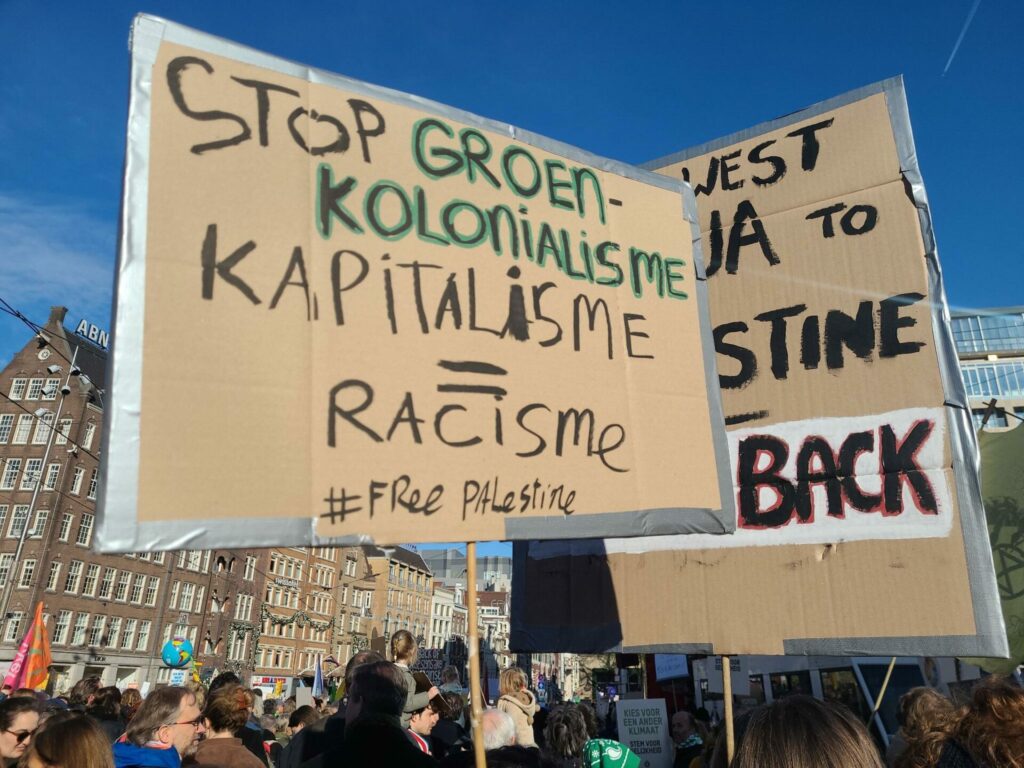 STOP GROEN-
KOLONIALISME
KAPITALISME
=
RACISME
#FREE PALESTINE
WEST
TO
BACK
ABN
KIES VOOR
EEN ANDER
KLIMAAT
STEM VOOR